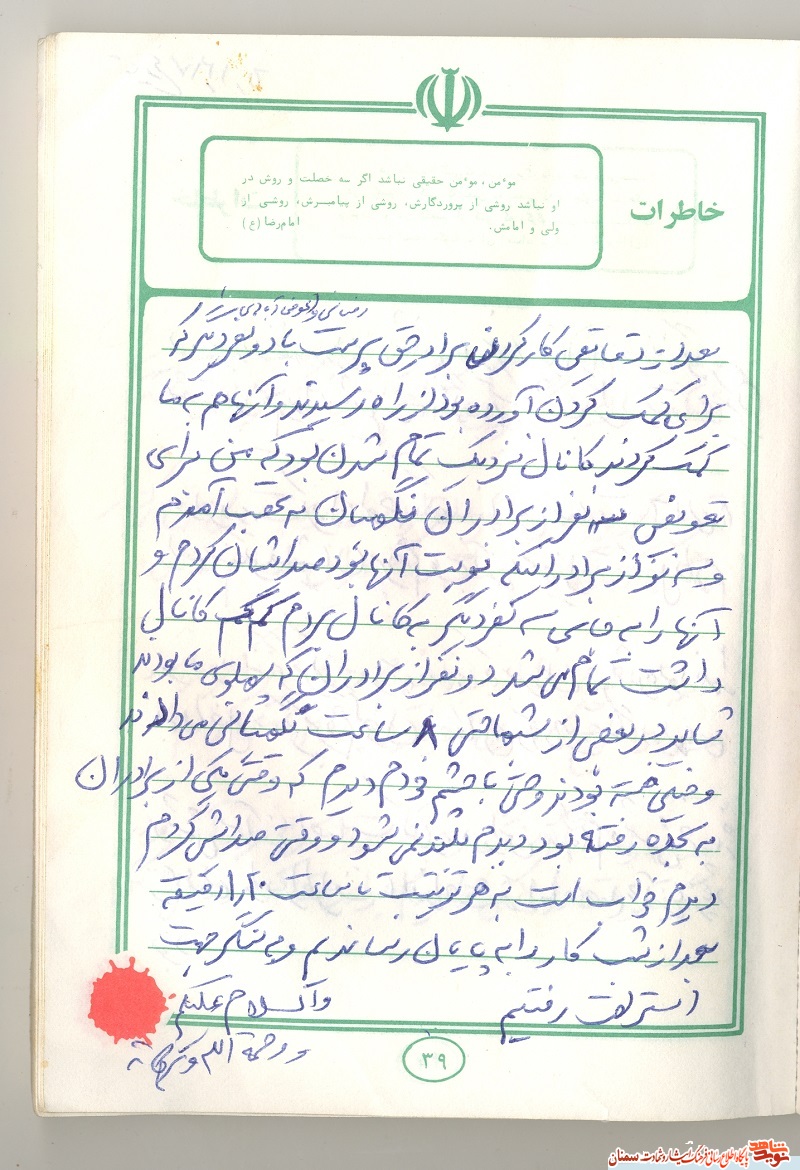 خاطرات
موءمن، موءمن حقیقی نباشد اگر سه خصلت و روش در
او نباشد روشی از پروردگارش، روشی از پیامبرش، روشی از
ولی و امامش. امام‌رضا (ع)
بعد از دقایقی کار کردن برادر حق پرست با دو نفر دیگر که
برای کمک کردن آورده بود از راه رسیدند و آنها هم به ما
کمک کردند کانال نزدیک تمام شدن بود که من برای
تعویض سه نفر از برادران نگهبان به عقب آمدم
و سه نفر از برادرانیکه نوبت آنها بود صدایشان کردم و
آنها را به جای سه نفر دیگر به کانال بردم کم کم کانال
داشت تمام می شد دو نفر از برادران که پهلوی ما بودند
شاید در بعضی از شبها حتی ۸ ساعت نگهبانی می دادند
و خیلی خسته بودند و حتی با چشم خودم دیدم که وقتی یکی از برادران
به سجده رفته بود دیدم بلند نمی شود و وقتی صدایش کردم
دیدم خواب است به هر ترتیب تا ساعت دقیقه
بعد از شب کار را به پایان رساندیم و به سنگر جهت
استراحت رفتیم والسلام علیکم
و رحمة الله و برکاته
۳۹
نوید شاهد پایگاه اطلاع رسانی فرهنگ ایثار و شهادت سمنان